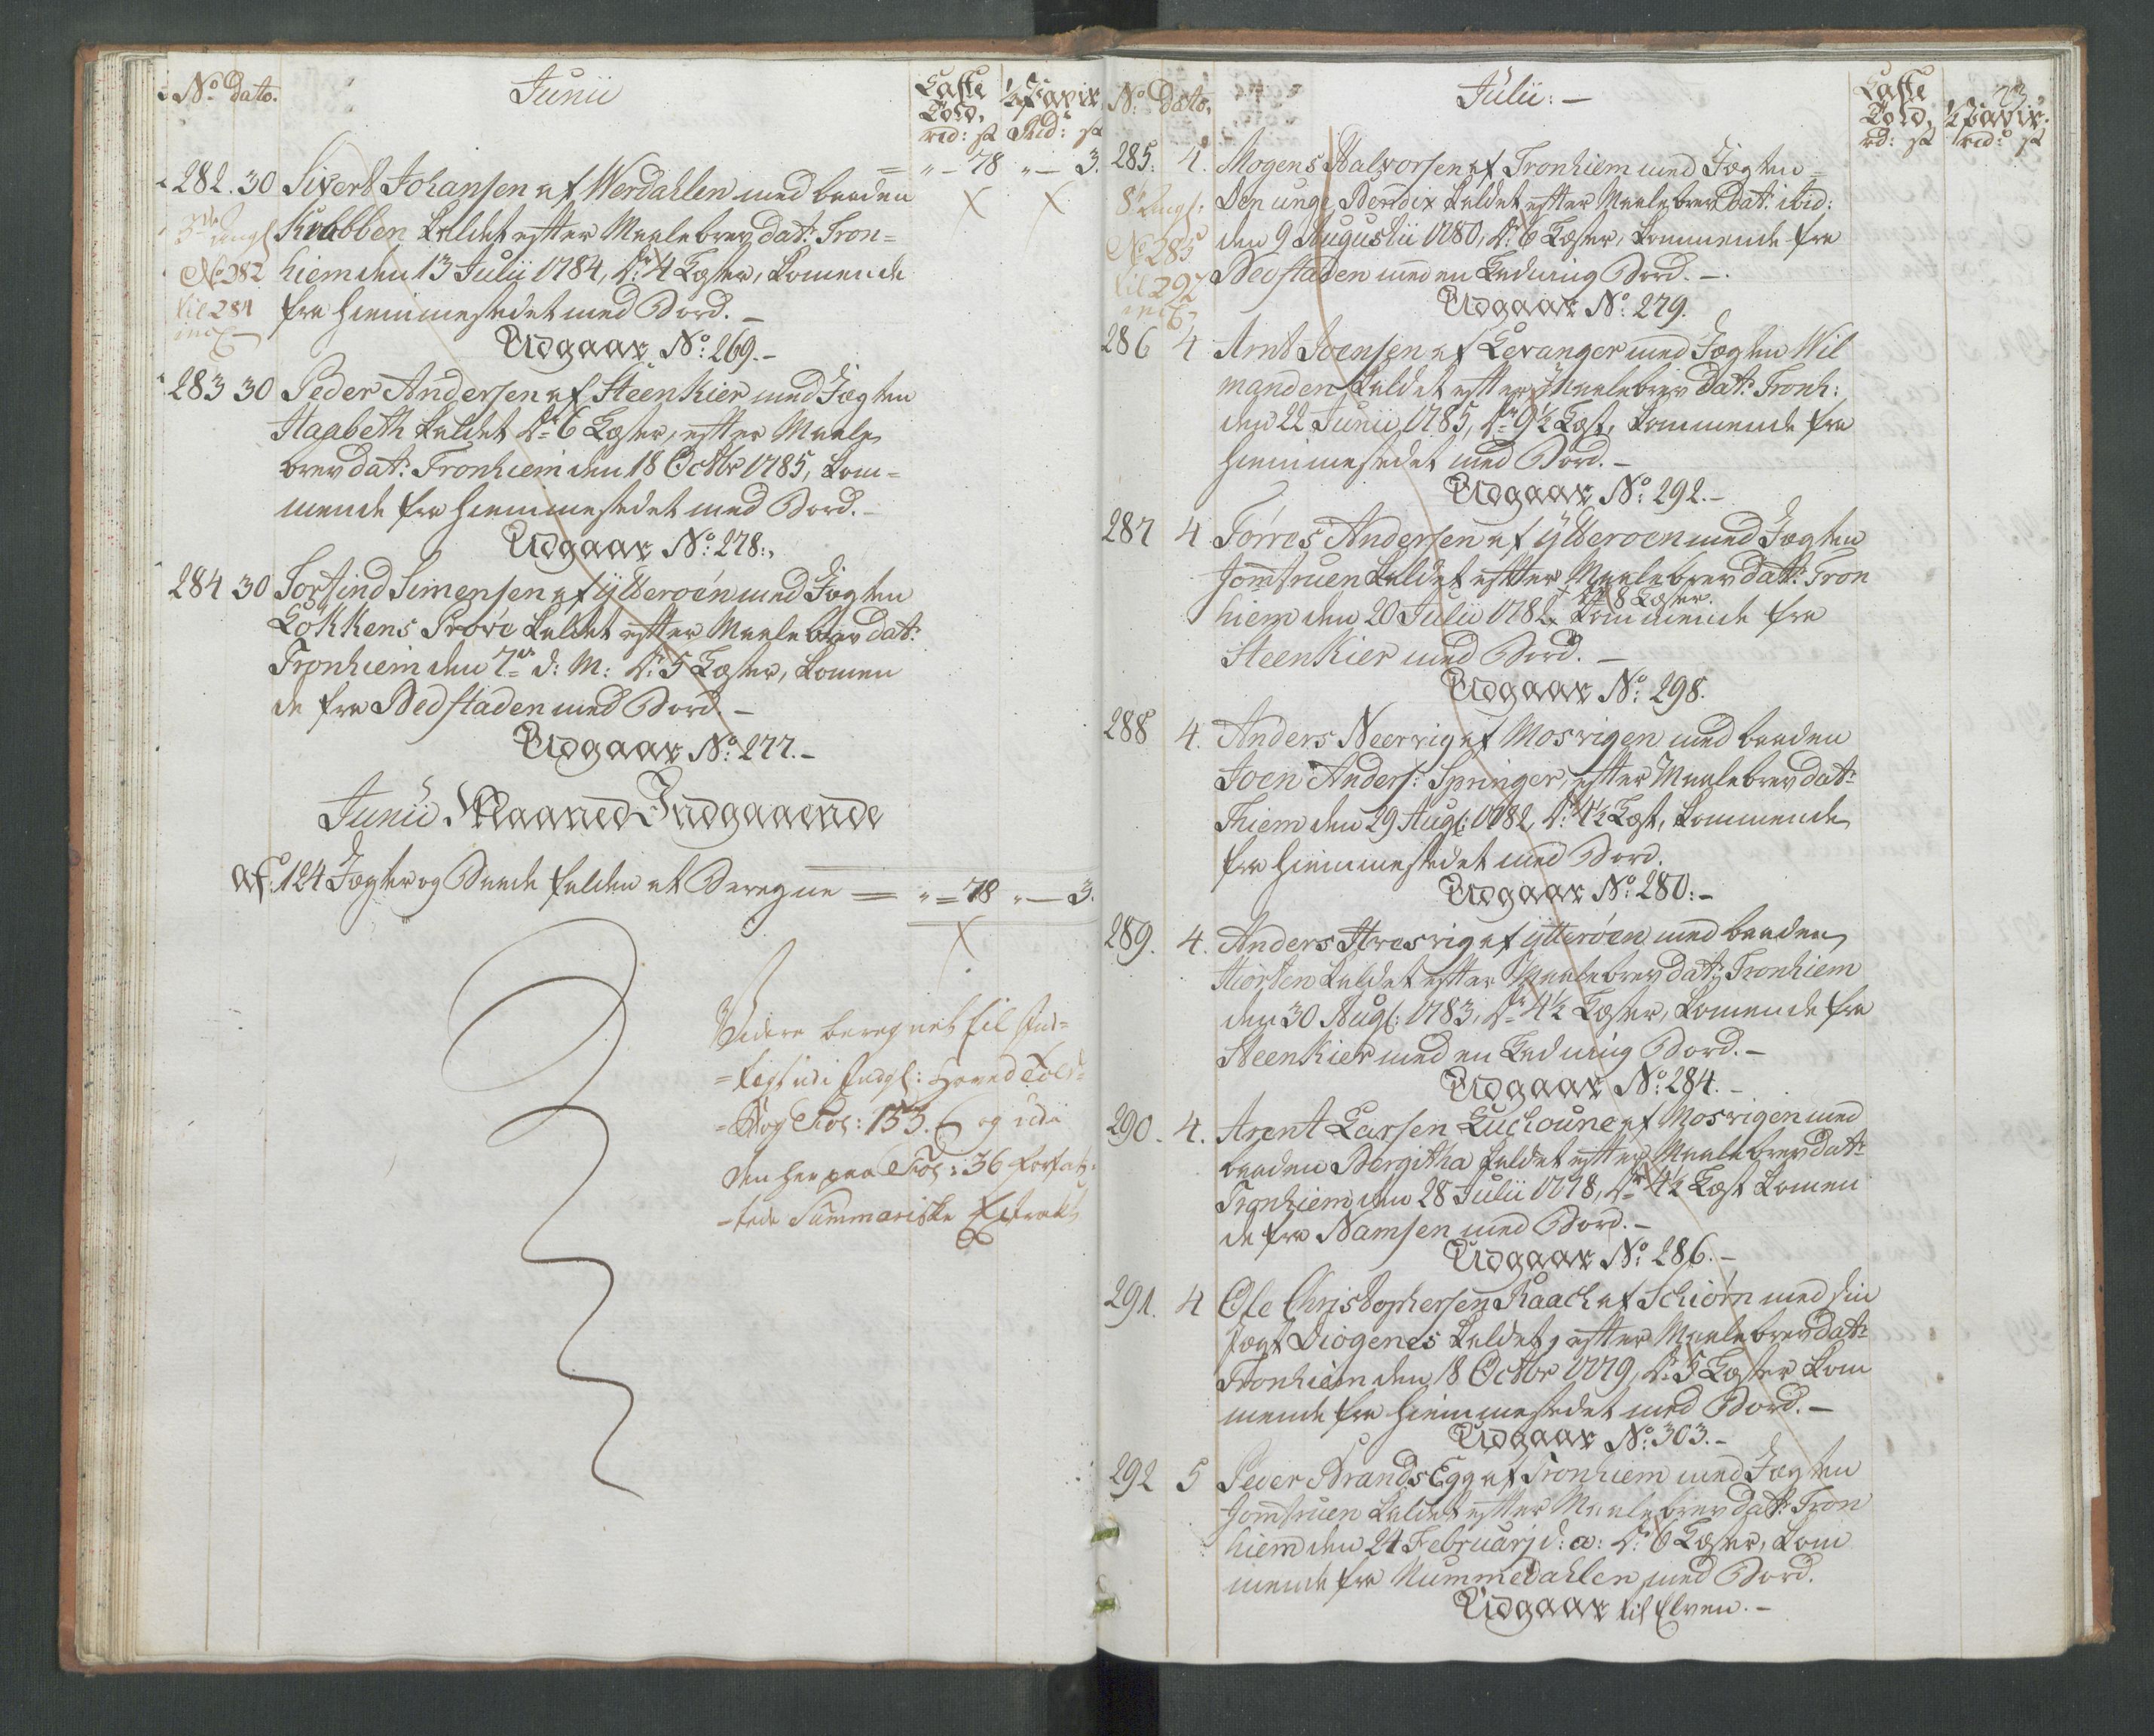 No dato.
Junii
Casse Told.
½ Pavix
rd: s Rd: s
282. 30 Sivert Johansen af Werdahlen med baaden = " - 78 " - 3.
Krabben kaldet efter Maalebrev dat: Tron=
hiem den 13 Julii 1784, Dr. 4 Læster, komende
fra Hiemmestedet med Bord. -
No 282
til 284
incl
Udgaar No: 269. -
283 30 Peder Andersen af Steenkier med Jægten
Haabeth kaldet Dr. 6 Læster, efter Maale
brev dat: Tronhiem den 18 Octbr 1785, kom=
mende fra Hiemmestedet med Bord. -
Udgaar No: 278:,
284 30 Torfind Simensen af Ytterøen med Jægten
Løkkens Prøve kaldet efter Maalebrev dat:
Tronhiem den 7de d: M: Dr. 5 Læster, komen
de fra Bedstaden med Bord. -
Udgaar No: 277. -
Junii Maaned Indgaaende
Af: 124 Jægter og Baade falden at Beregne = " = 78 " - 3.
Videre beregnet til Ind=
=tægt udi Indgl: Hoved Told=
=Bog Fol: 153. og udi
den her paa Fol: 36 forfat=
=tede Summariske Extract
No: Dato.
Julii: -
23
Casse Told.
½ Pavix.
rd: s rd: s
285. 4. Mogens Halvorsen af Tronhiem med Jægten =
Den unge Bendix kaldet efter Maalebrev dat: ibid:
den 9 Augustii 1780, Dr. 6 Læster, kommende fra
Bedstaden med en Ladning Bord. -.
No 285
til 297
incl
Udgaar No: 279.
286 4 Arnt Joensen af Levanger med Jægten Wil
manden kaldet efter Maalebrev dat: Tronh:
den 22 Junii 1785, Dr. 9½ Læst, kommende fra
Hiemmestedet med Bord. -
Udgaar No: 292. -
287 4 Tørres Andersen af Ytterøen med Jægten
Jomfruen kaldet efter Maalebrev dat: Tron
Dr. 8 Læster.
hiem den 20 Julii 1782 kommende fra
Steenkier med Bord. -
Udgaar No: 298.
288 4. Anders Neervig af Mosvigen med baaden
Joen Anders: Springer, efter Maalebrev dat:
Thiem den 29 Aug: 1782, Dr. 4½ Læst, kommende
fra Hiemmestedet med Bord.
Udgaar No: 280: -
289. 4. Anders af Ytterøen med baaden
Hiorten kaldet efter Maalebrev dat: Tronhiem
den 30 Aug: 1783, Dr. 4½ Læster, komende fra
Steenkier med en Ladning Bord. -
Udgaar No: 284. -
290. 4. Arent Larsen af Mosvigen med
baaden Bergitha kaldet efter Maalebrev dat:
Tronhiem den 28 Julii 1778, Dr. 4½ Læst komen
de fra Namsen med Bord. -
Udgaar No: 286. -
291. 4 Ole Christophersen Raach af Schiørn med sin
Jægt Diogenes kaldet, efter Maalebrev dat:
Tronhiem den 18 Octbr 1779, Dr. 5 Læster kom
mende fra Hiemmestedet med Bord. -
Udgaar No: 303. -
292 5 Peder Brands Egg af Tronhiem med Jægten
Jomfruen kaldet efter Maalebrev dat: Tron
hiem den 24 Februarj d: a: Dr. 6 Læster, kom
mende fra Nummedahlen med Bord.
Udgaar til Elven. -